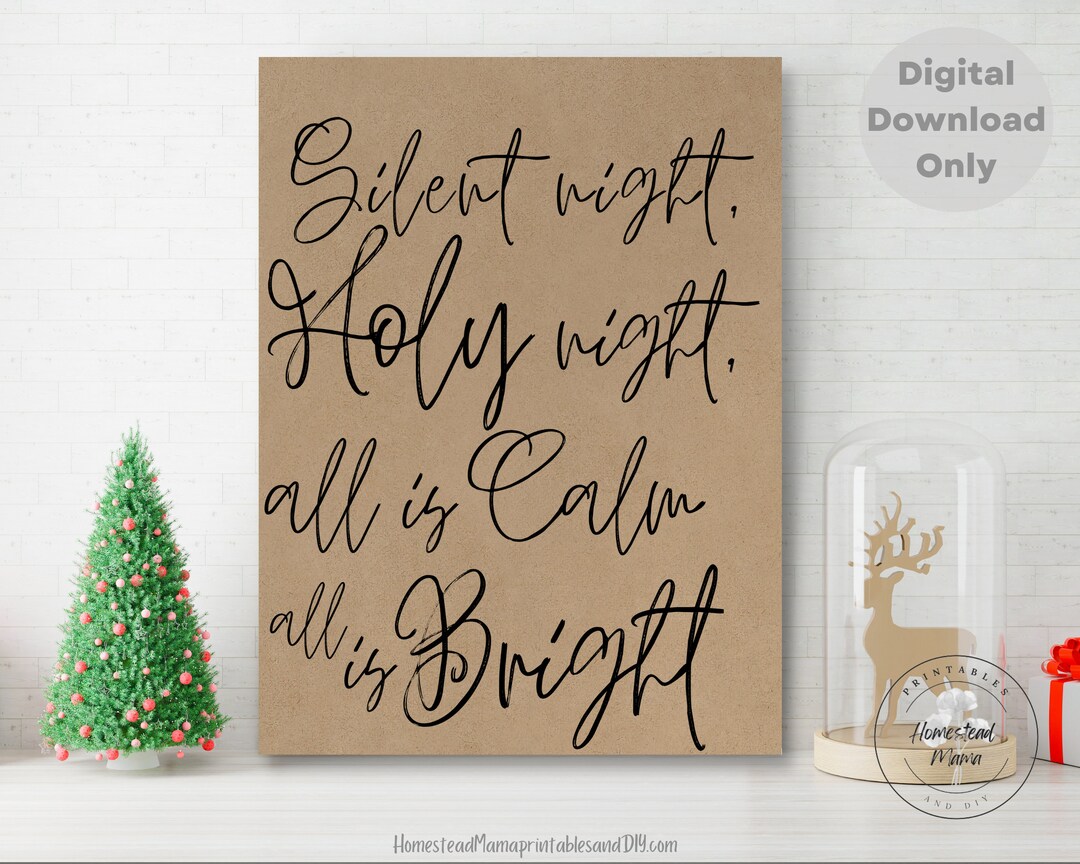 Digital
Download
Only
Silent night,
Holy night,
all is Calm
all is Bright
PRINTABLES
Homestead
Mama
AND DIY
HomesteadMamaprintablesandDIY.com